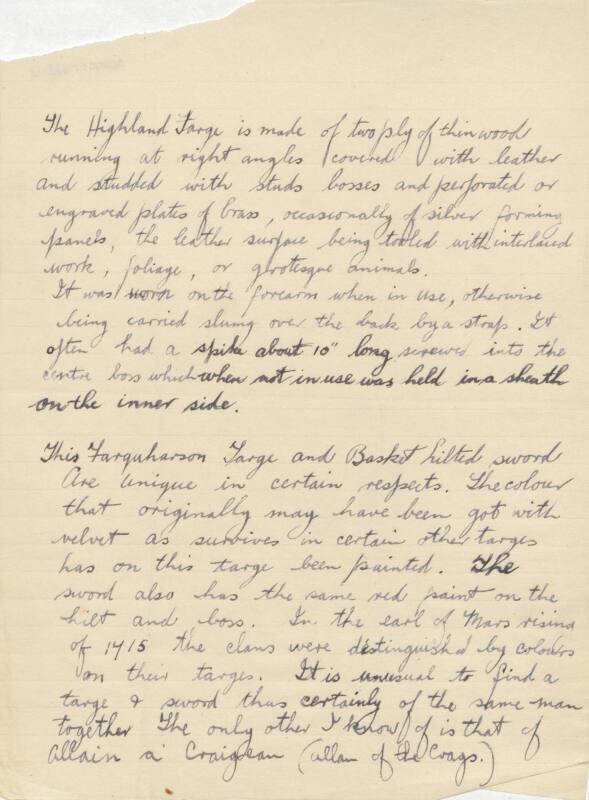 The Highland Targe is made of two ply of thin wood
running at right angles (covered with leather
and studded with studs bosses and perforated or
engraved plates of brass, occasionally of silver forming
panels, the leather surface being tooled with interlaced
work, foliage, or grotesque animals.
It was worn on the forearm when in use, otherwise
being carried slung over the back by a strap. It
often had a spike about 10" long screwed into the
centre boss which when not in use was held in a sheath
on the inner side.
This Farquharson Targe and Basket hilted sword
Are unique in certain respects. The colour
that originally may have been got with
velvet as survives in certain other targes
has on this targe been painted. The
sword also has the same red paint on the
hilt and boss. In the earl of Mars rising
of 1715 the clans were distinguished by colours
on their targes. It is unusual to find a
targe & sword thus certainly of the same man
together The only other I know of is that of
Allain a' Craigean (allan of the Crags.)